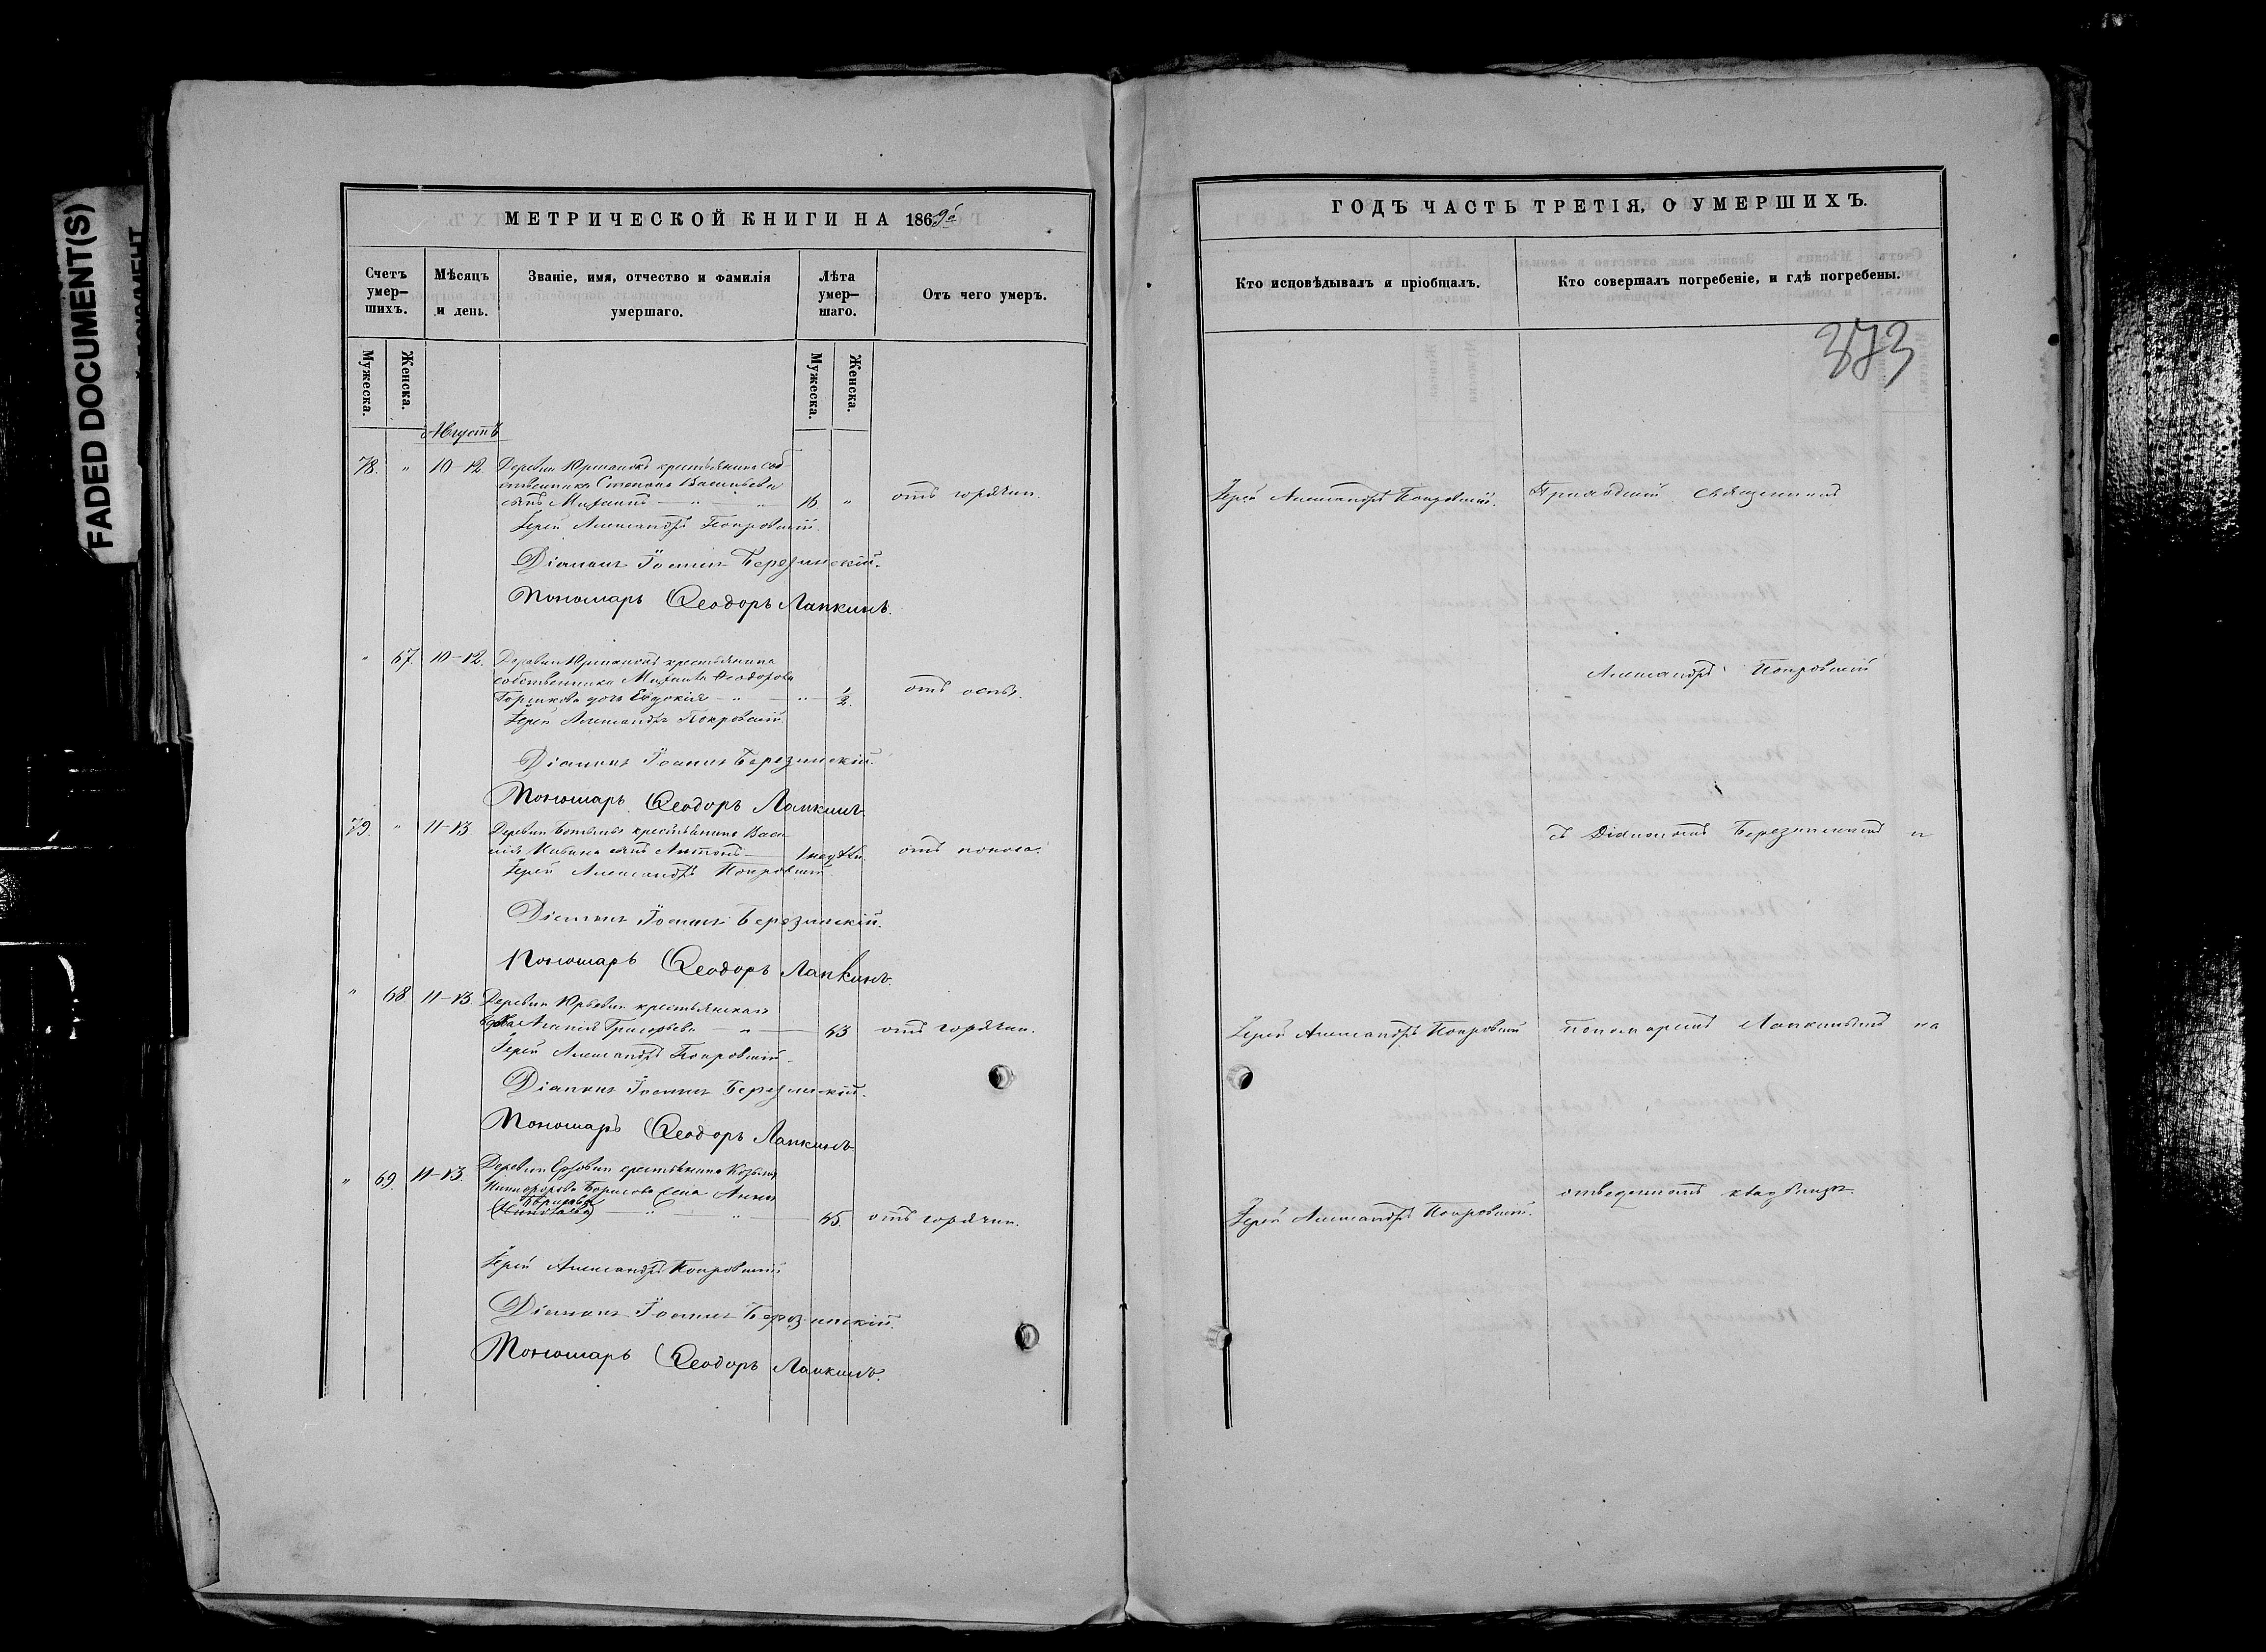 FADED DOCUMENT(S)
МЕТРИЧЕСКОЙ КНИГИ НА 1869й
Счетъ умер-шихъ.
Мѣсяцъ и день.
Званіе, имя, отчество и фамилія умершаго.
Лѣта умер-шаго.
Отъ чего умеръ.
Мужеска.
Женска.
Мужеска.
Женска.
Августъ
78. " 10-12 Деревни крестьянина соб-
ственника Степана Васильева
сынъ Михаилъ — " — " 16 " отъ горячки.
Іерей Александръ Покровскій.
Діаконъ Іоаннъ Березинскій.
Пономарь Ѳеодоръ Лапкинъ.
" 67. 10-12. Деревни крестьянина
собственника Михаила Ѳеодорова
Горшкова дочь Евдокія — " — " — 1/2. отъ оспы.
Іерей Александръ Покровскій.
Діаконъ Іоаннъ Березинскій.
Пономарь Ѳеодоръ Лапкинъ.
79. " 11-13. Деревни крестьянина Васи-
лія сынъ Антонъ — отъ поноса.
Іерей Александръ Покровскій
Діаконъ Іоаннъ Березинскій.
Пономарь Ѳеодоръ Лапкинъ.
" 68. 11-13. Деревни Юрьевки крестьянская
вдова Григорьева — " — 63 отъ горячки.
Іерей Александръ Покровскій.
Діаконъ Іоаннъ Березинскій.
Пономарь Ѳеодоръ Лапкинъ
" 69. 11-13. Деревни крестьянина Козьмы
Никифорова Борисова жена Анна
Борисова
— " — " — 65. отъ горячки.
Іерей Александръ Покровскій
Діаконъ Іоаннъ Березинскій.
Пономарь Ѳеодоръ Лапкинъ.
ГОДЪ ЧАСТЬ ТРЕТІЯ, О УМЕРШИХЪ.
Кто исповѣдывалъ и пріобщалъ.
Кто совершалъ погребеніе, и гдѣ погребены.
373
Іерей Александръ Покровскій. Приходскій священникъ
Александръ Покровскій
съ Діакономъ Березинскимъ и
Іерей Александръ Покровскій пономаремъ Лапкинымъ на
отведенномъ кладбищѣ.
Іерей Александръ Покровскій.